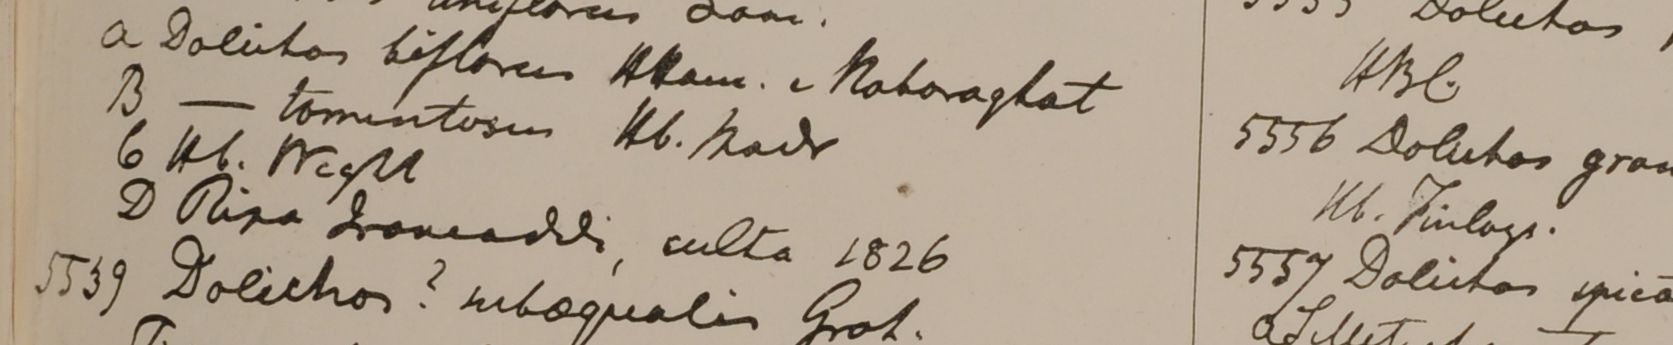 uniflorus Lam.
a Dolichos biflorus HHam. e Nabobaghat
B — tomentosus Hb. Madr
C Hb. Wight
D Ripa Irawaddi, culta 1826
5539 Dolichos? subæqualis Grah.
5555 Dolichos
HBC.
5556 Dolichos gran
Hb. Finlays.
5557 Dolichos spica